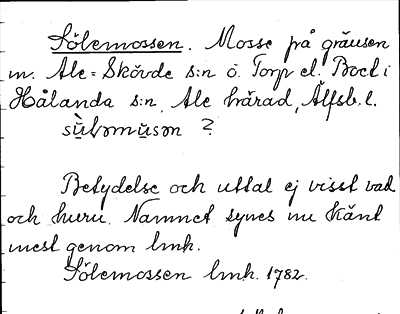 Sölemossen. Mosse på gränsen
m. Ale-Skövde s:n o. Torp el. Bock i
Hålanda s:n, Ale härad, Älfsb. l.
sùləmusən ?
Betydelse och uttal ej visst vad
och huru. Namnet synes nu känt
mest genom lmk.
Sölemossen lmk. 1782.